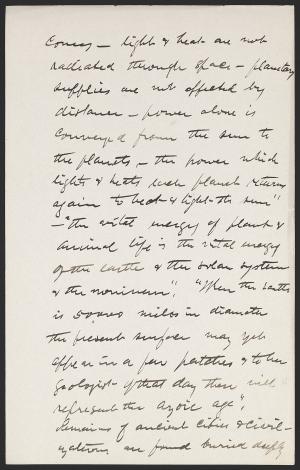 comes – light & heat are not
radiated through space – planetary
supplies are not affected by
distance – power alone is
conveyed from the sun to
the planets – the power which
lights & heats each planet returns
again to heat & light the sun"
– "the vital energy of plant &
animal life is the vital energy
of the earth & the solar system
& the universe". "When the earth
is 50,000 miles in diameter
the present surface may yet
appear in a few patches & to the
geologist of that day then will
represent the azoic age",
Remains of ancient cities & civil-
izations are found buried deeply